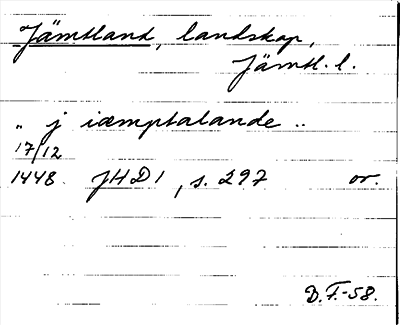 Jämtland, landskap,
Jämtl. l.
.. j iæmptalande ..
17/12
1448. JHD 1, s. 297 or.
D. F.-58.